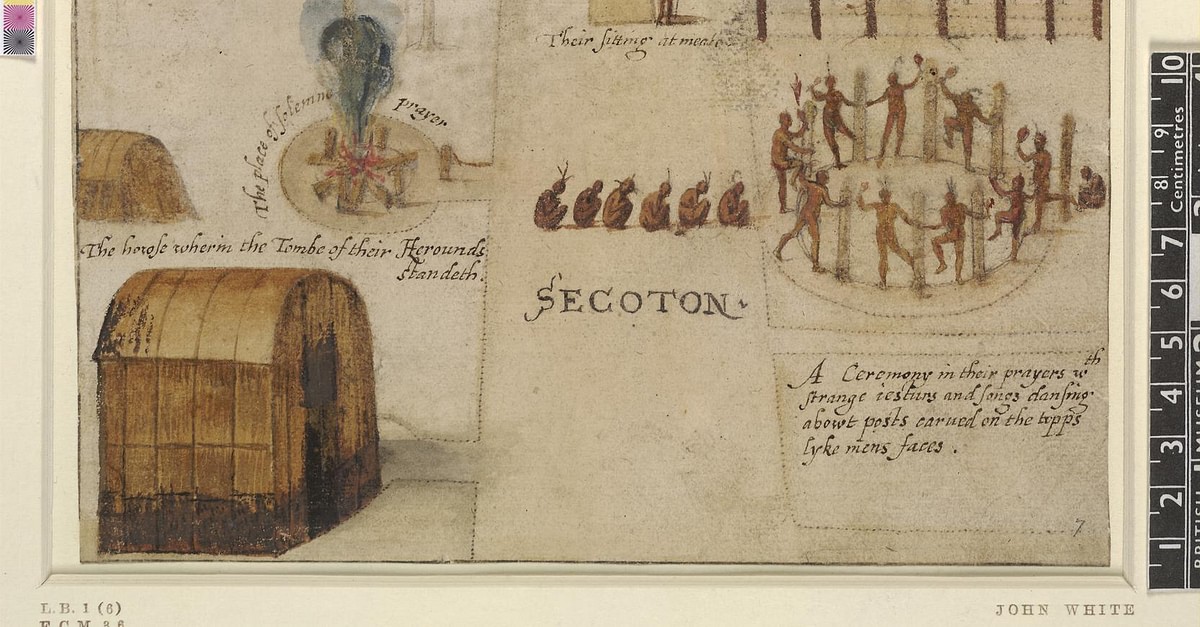 Their sitting at meate
The place of solemne prayer
The howse wherin the Tombe of their Herounds
standeth.
SECOTON
A Ceremony in their prayers wth
strange iesturs and songs dansing
abowt posts carved on the topps
lyke mens faces.
7
L.B. 1 (6)
JOHN WHITE
1 2 3 4 5 6 7 8 9 10
Centimetres